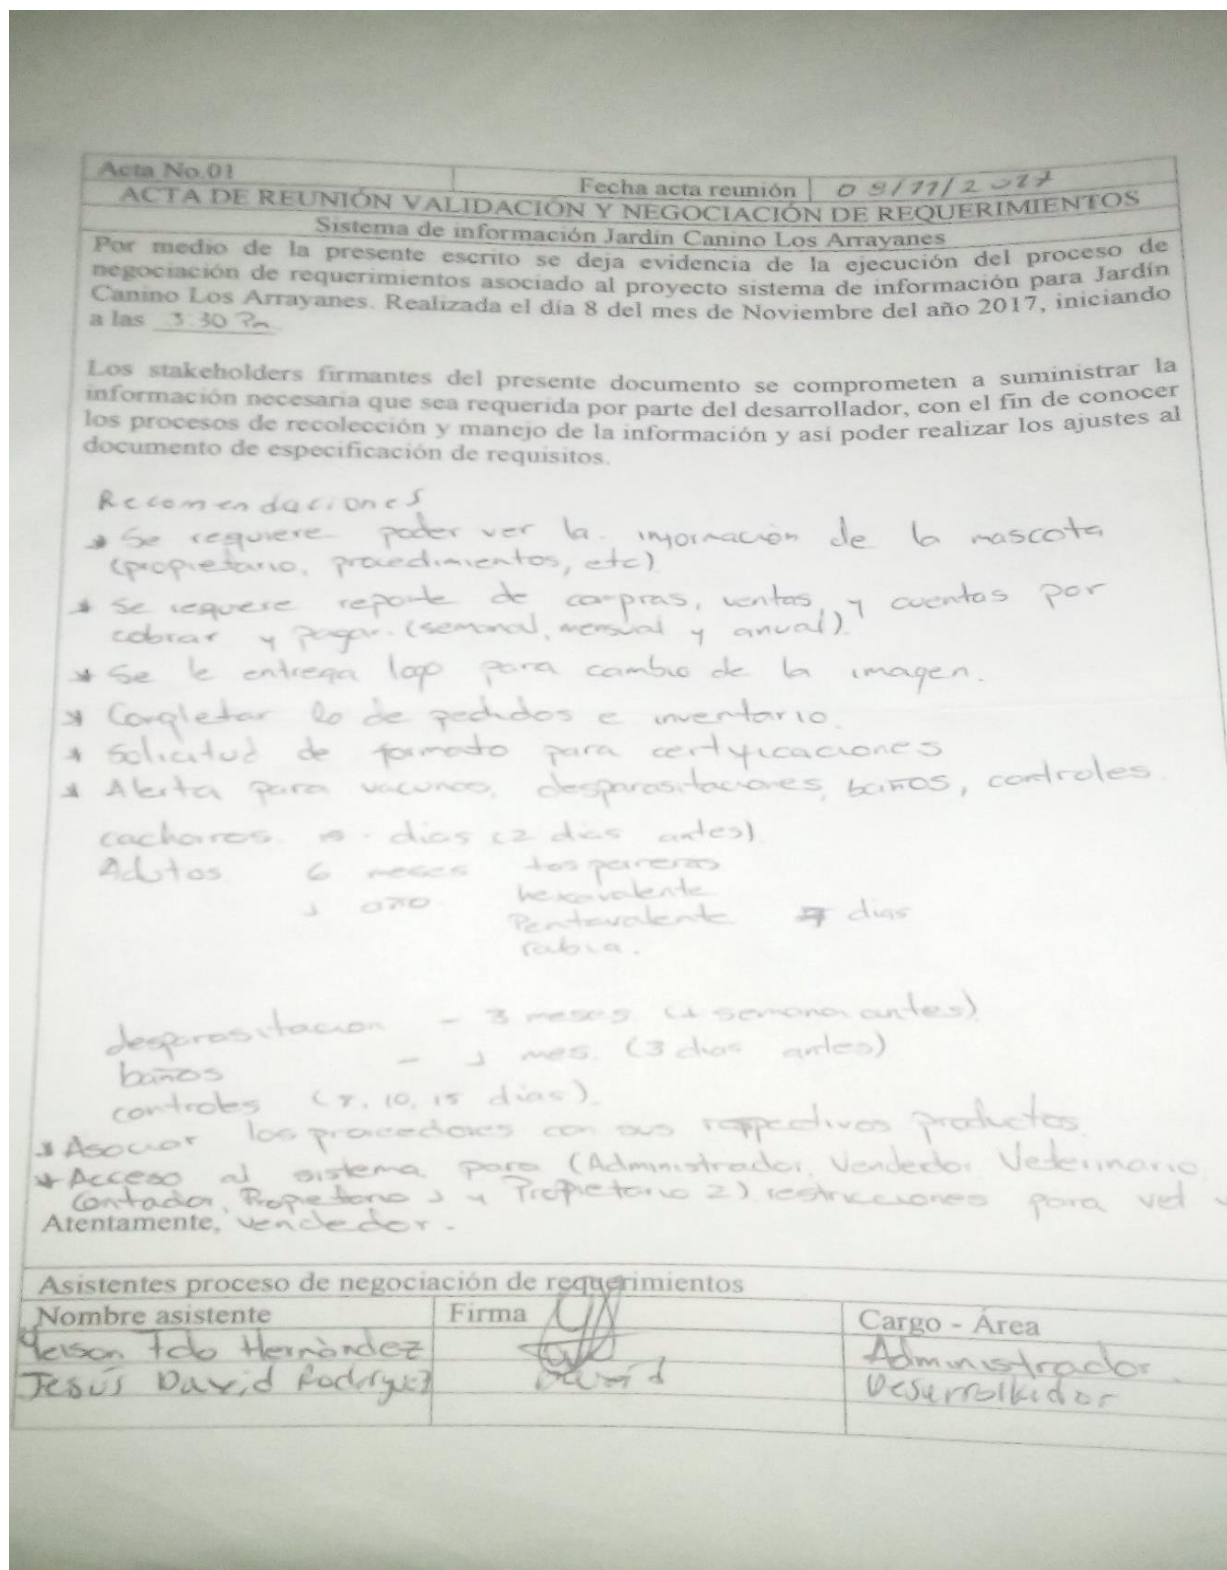 Acta No.01
Fecha acta reunión 09/11/2017
ACTA DE REUNIÓN VALIDACIÓN Y NEGOCIACIÓN DE REQUERIMIENTOS
Sistema de información Jardín Canino Los Arrayanes
Por medio de la presente escrito se deja evidencia de la ejecución del proceso de
negociación de requerimientos asociado al proyecto sistema de información para Jardín
Canino Los Arrayanes. Realizada el día 8 del mes de Noviembre del año 2017, iniciando
a las 3:30 Pm
Los stakeholders firmantes del presente documento se comprometen a suministrar la
información necesaria que sea requerida por parte del desarrollador, con el fin de conocer
los procesos de recolección y manejo de la información y así poder realizar los ajustes al
documento de especificación de requisitos.
Recomendaciones
* Se requiere poder ver la información de la mascota
(propietario, procedimientos, etc)
* Se requiere reporte de compras, ventas, y cuentas por
cobrar y pagar. (semanal, mensual y anual).
* Se le entrega logo para cambio de la imagen.
* Completar lo de pedidos e inventario.
* Solicitud de formato para certificaciones
* Alerta para vacunas, desparasitaciones, baños, controles.
cachorros. dias (2 dias antes)
Adultos 6 meses tos perreras
1 año hexavalente
Pentavalente dias
rabia.
desparasitacion - 3 meses (1 semana antes)
baños - 1 mes. (3 dias antes)
controles (8, 10, 15 dias).
* Asociar los proveedores con sus respectivos productos.
* Acceso al sistema para (Administrador, Vendedor, Veterinario,
Contador, Propietario 1 y Propietario 2) restricciones para vet y
Atentamente, vendedor.
Asistentes proceso de negociación de requerimientos
Nombre asistente Firma Cargo - Área
Yeison Hernández Administrador
Jesús David Rodríguez David Desarrollador